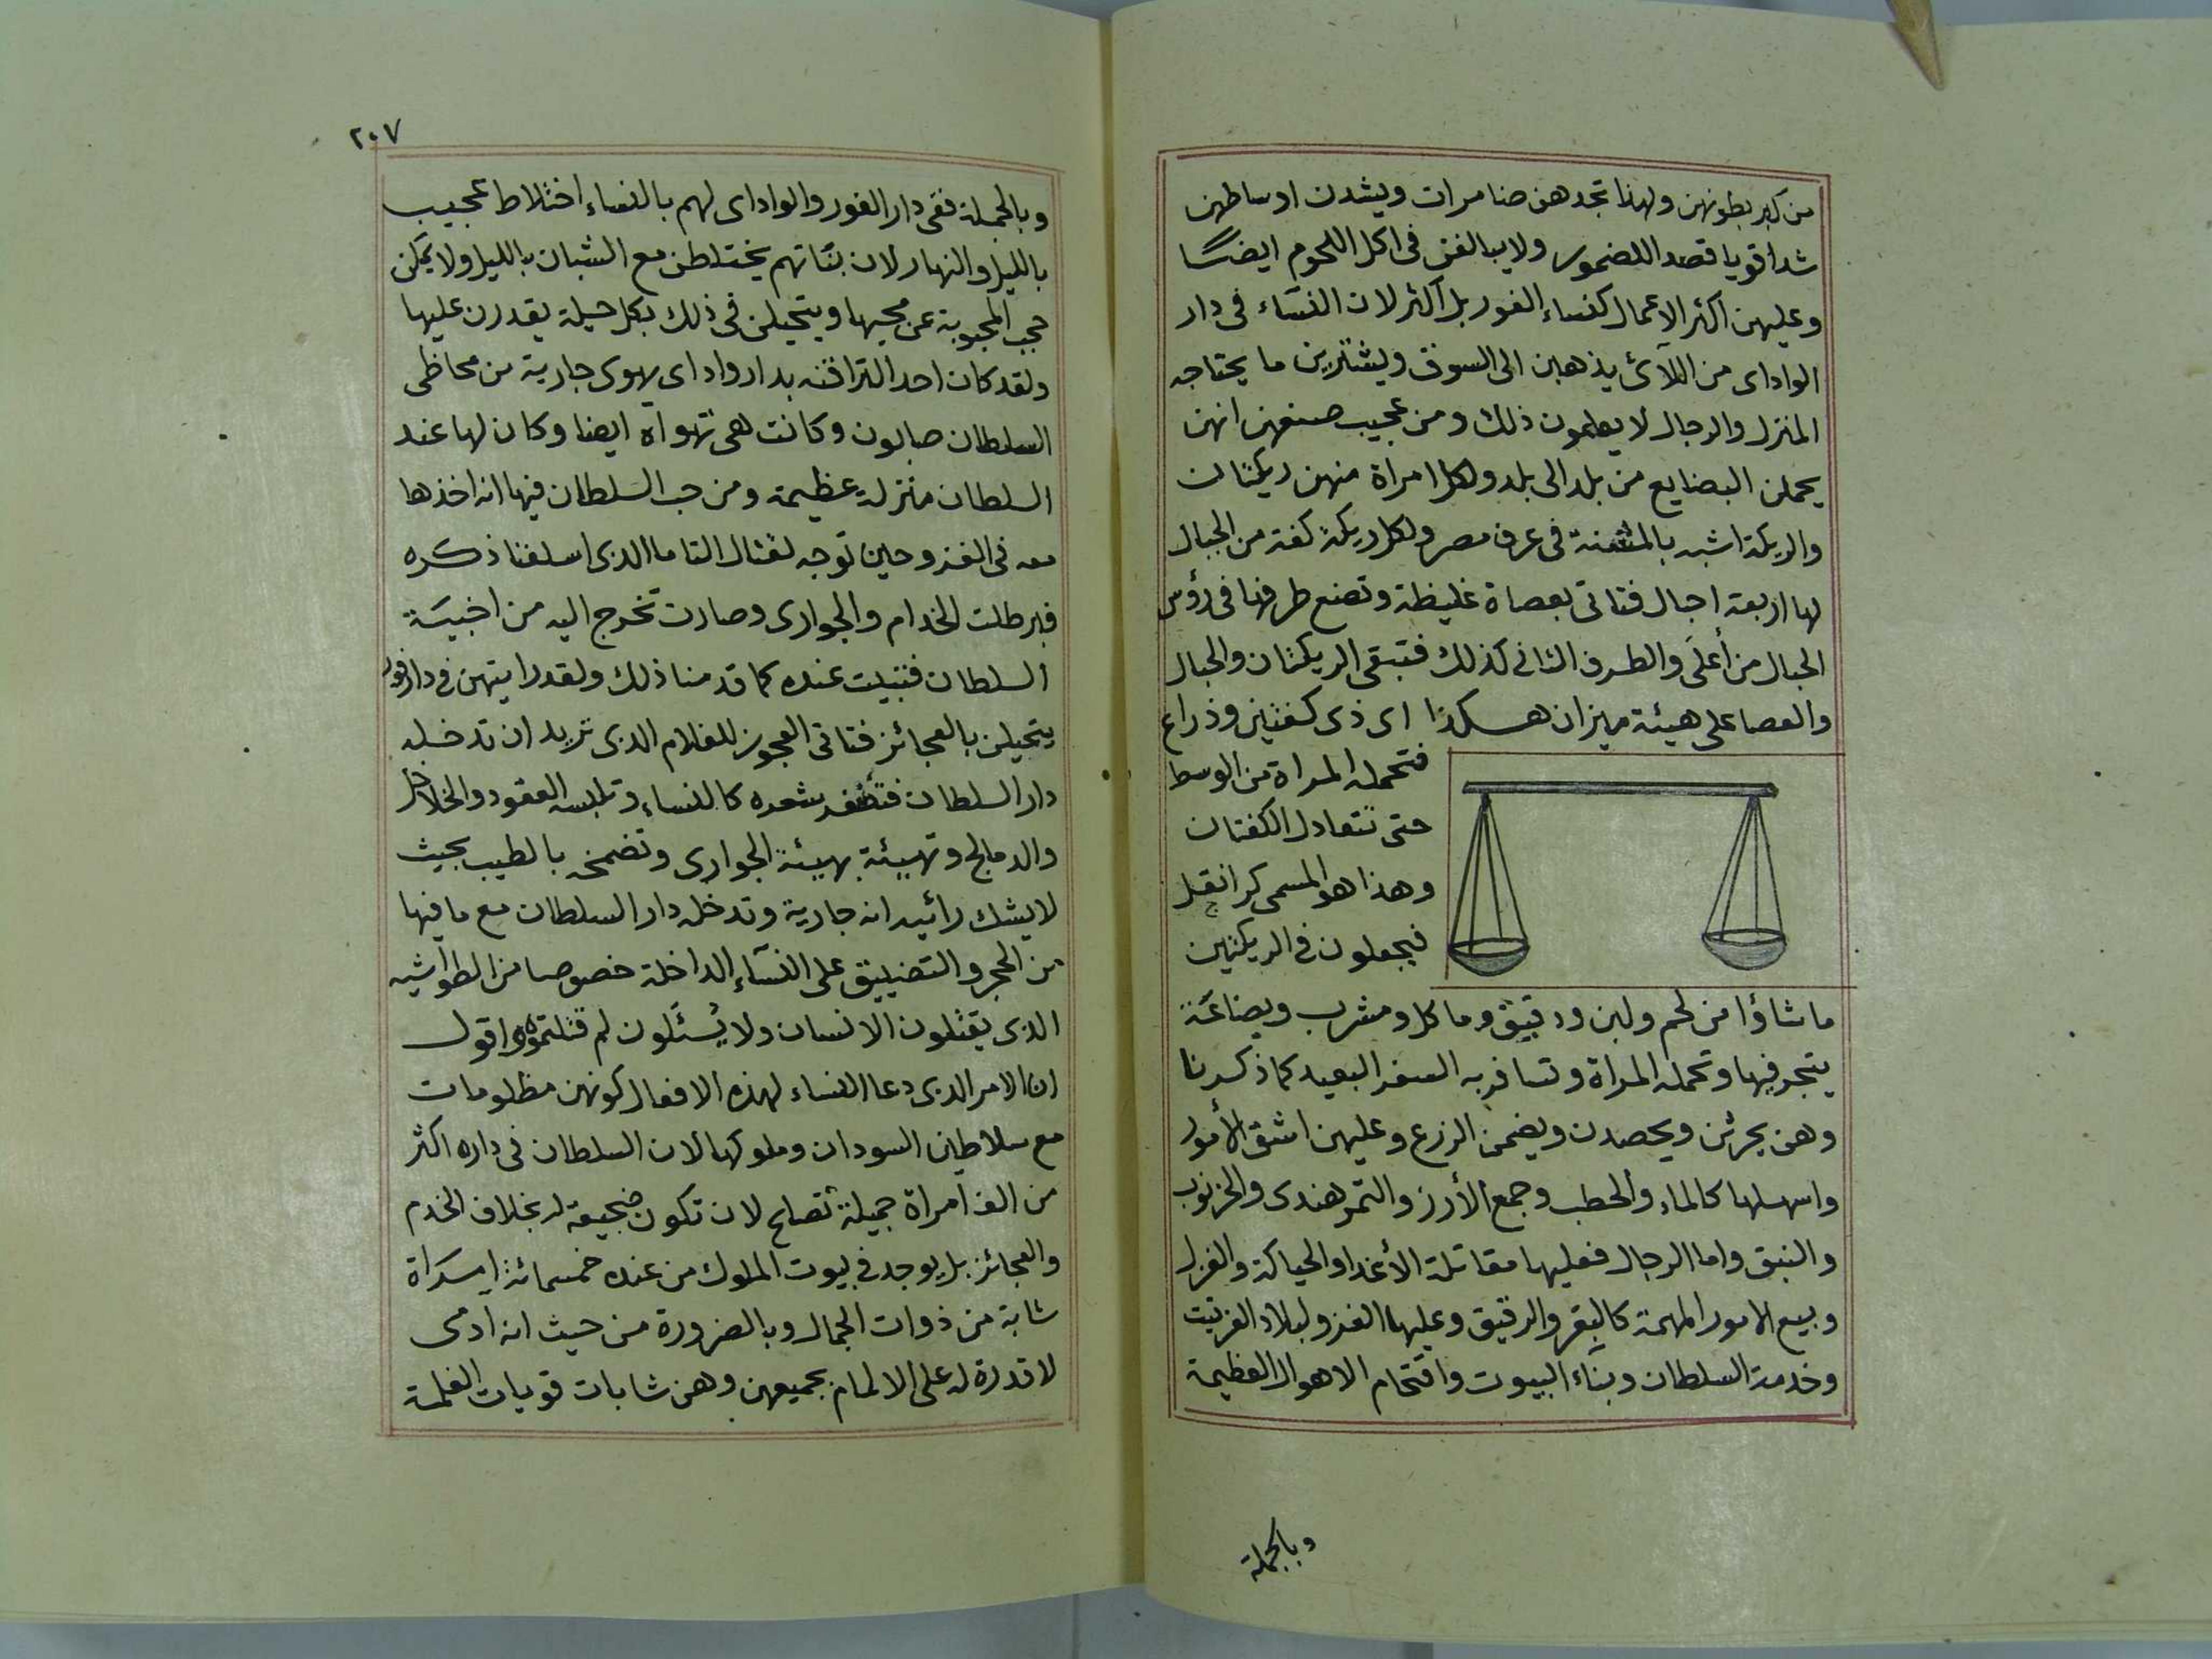 من كبر بطونهن ولهذا تجدهن ضامرات ويشدن اوساطهن
شداقويا قصد اللضمور ولايبالغن فى اكل اللحوم ايضًا
وعليهن اكثر الاعمال كنساء الفور بل اكثر لان النساء فى دار
الواداى من اللآئ يذهبن الى السوق ويشترين ما يحتاجه
المنزل والرجال لا يعلمون ذلك ومن عجيب صنعهن انهن
يحملن البضايع من بلد الى بلد ولكل امراة منهن ريكتان
والريكة اشبه بالمشنة فى عرف مصر ولكل ريكة كفة من الحبال
لها اربعة احبال فتاتى بعصاة غليظة وتصنع طرفها فى رؤس
الحبال من أعلى والطرف الثانى كذلك فتبقى الريكتان والحبال
والعصا على هيئة ميزان هكذا اى ذى كفتين وذراع
فتحمله المراة من الوسط
حتى تتعادل الكفتان
وهذا هو المسمى كرانقل
فيجعلون فى الريكتين
ما شاؤا من لحم ولبن ودقيق وماكل ومشرب وبضاعة
يتجر فيها وتحمله المراة وتسافر به السفر البعيد كما ذكرنا
وهن يحرثن ويحصدن ويضمن الزرع وعليهن اشق الأمور
واسهلها كالماء والحطب وجمع الأرز والتمرهندى والخرنوب
والنبق واما الرجال فعليها مقاتلة الأعدا والحياكة والغزل
وبيع الامور المهمة كالبقر والرقيق وعليها الغزو لبلاد الفرتيت
وخدمة السلطان وبناء البيوت واقتحام الاهوال العظيمة
وبالجملة
٢٠٧
وبالجملة ففى دار الفور والواداى لهم بالنساء اختلاط عجيب
بالليل والنهار لان بناتهم يختلطن مع الشبان بالليل ولا يمكن
حجب المحبوبة عن محبها ويتحيلن فى ذلك بكل حيلة يقدرن عليها
ولقد كان احد التراقنه بدار واداى يهوى جارية من محاظى
السلطان صابون وكانت هى تهواه ايضا وكان لها عند
السلطان منزلة عظيمة ومن حب السلطان فيها انه اخذها
معه فى الغزو حين توجه لقتال التاما الذى اسلفنا ذكره
فبرطلت الخدام والجوارى وصارت تخرج اليه من اخبية
السلطان فتبيت عنده كما قدمنا ذلك ولقد رايتهن فى دار فور
يتحيلن بالعجائز فتاتى العجوز للغلام الذى تريد ان تدخله
دار السلطان فتضفر شعره كالنساء وتلبسه العقود والخلاخل
والدمالج وتهيئة بهيئة الجوارى وتضمخه بالطيب بحيث
لايشك رائيه انه جارية وتدخله دار السلطان مع ما فيها
من الحجر والتضييق على النساء الداخلة خصوصا من الطواشيه
الذى يقتلون الانسان ولا يُسئلون لم قتلتموه واقول
ان الامر الذى دعا النساء لهذه الافعال كونهن مظلومات
مع سلاطين السودان وملوكها لان السلطان فى داره اكثر
من الف امراة جميلة تصلح لان تكون ضجيعة له بخلاف الخدم
والعجائز بل يوجد فى بيوت الملوك من عنده خمسمائة امراة
شابة من ذوات الجمال وبالضرورة من حيث انه ادمى
لا قدرة له على الالمام بجميعهن وهن شابات قويات الغلمة